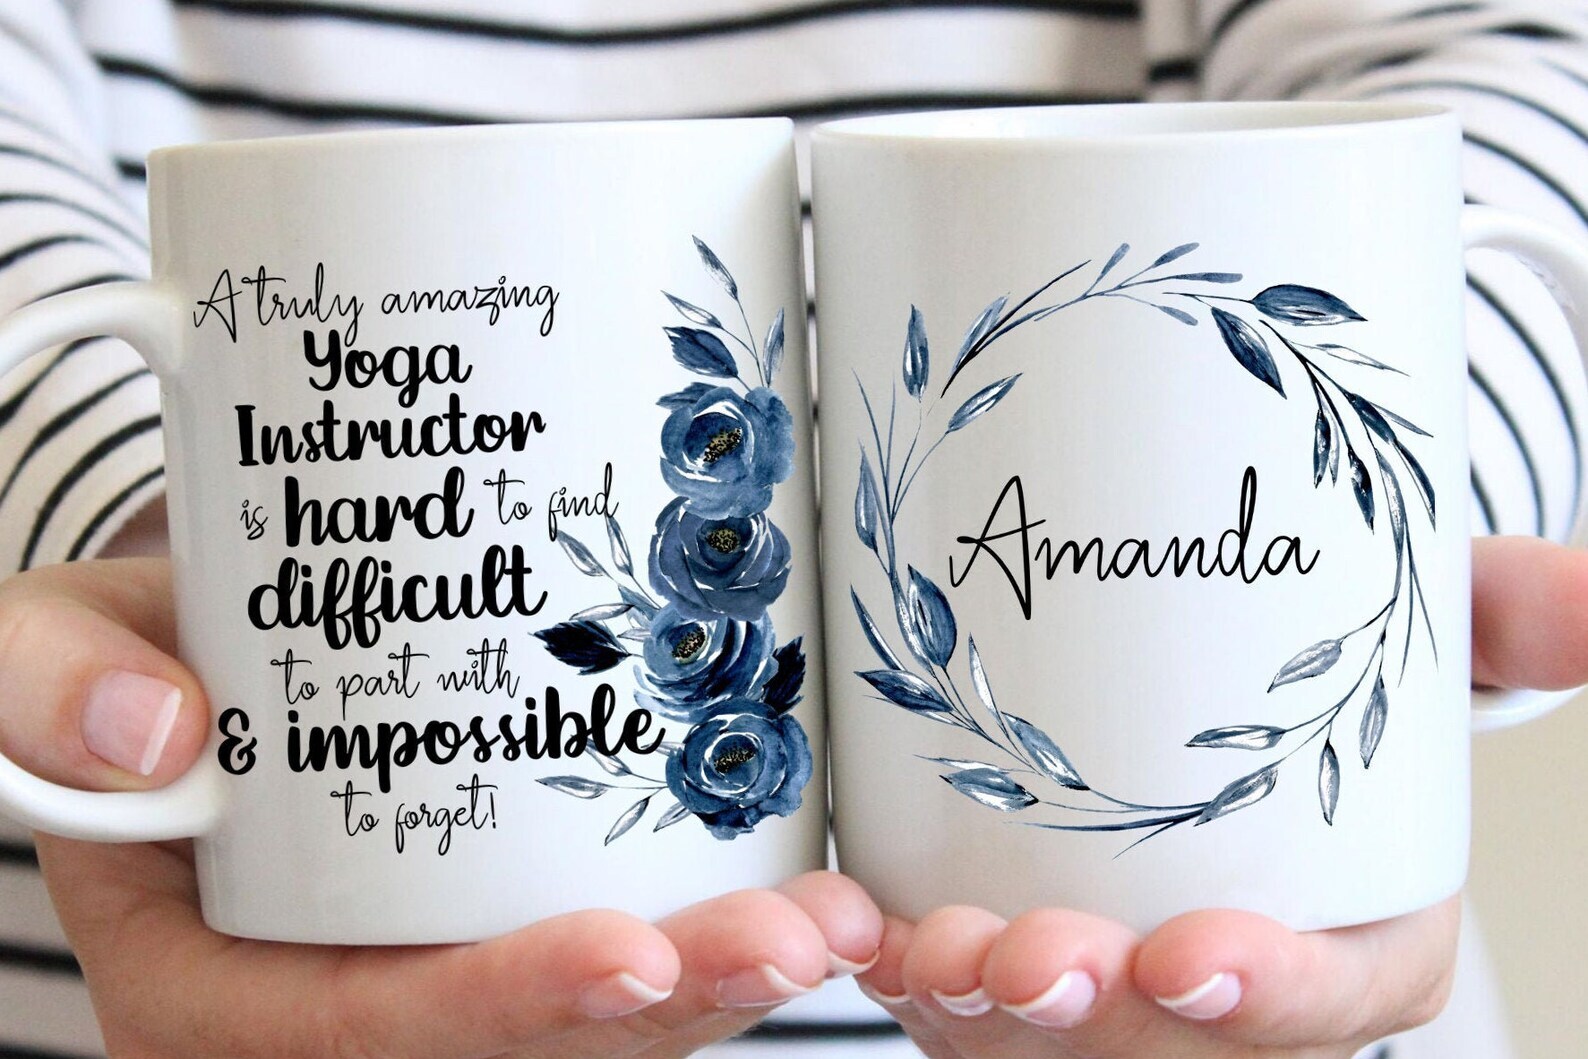 A truly amazing
Yoga
Instructor
is hard to find
difficult
to part with
& impossible
to forget!
Amanda